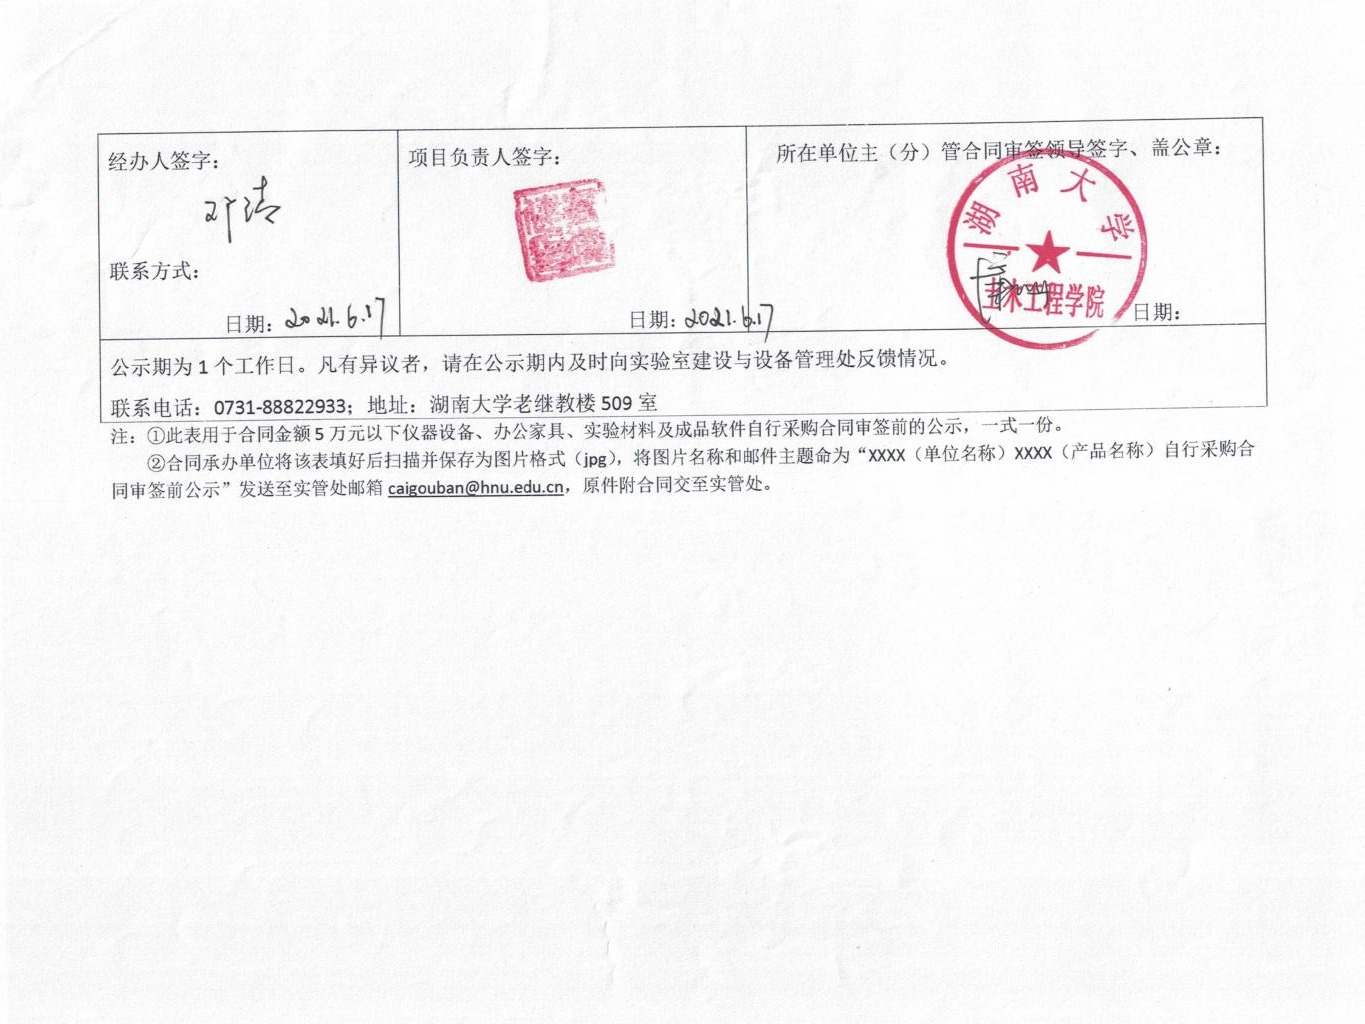 经办人签字：
项目负责人签字：
所在单位主（分）管合同审签领导签字、盖公章：
邓清
湖南大学
土木工程学院
联系方式：
日期：2021.6.17
日期：2021.6.17
日期：
公示期为 1 个工作日。凡有异议者，请在公示期内及时向实验室建设与设备管理处反馈情况。
联系电话：0731-88822933；地址：湖南大学老继教楼 509 室
注：①此表用于合同金额 5 万元以下仪器设备、办公家具、实验材料及成品软件自行采购合同审签前的公示，一式一份。
②合同承办单位将该表填好后扫描并保存为图片格式（jpg），将图片名称和邮件主题命为“XXXX（单位名称）XXXX（产品名称）自行采购合
同审签前公示”发送至实管处邮箱 caigouban@hnu.edu.cn，原件附合同交至实管处。